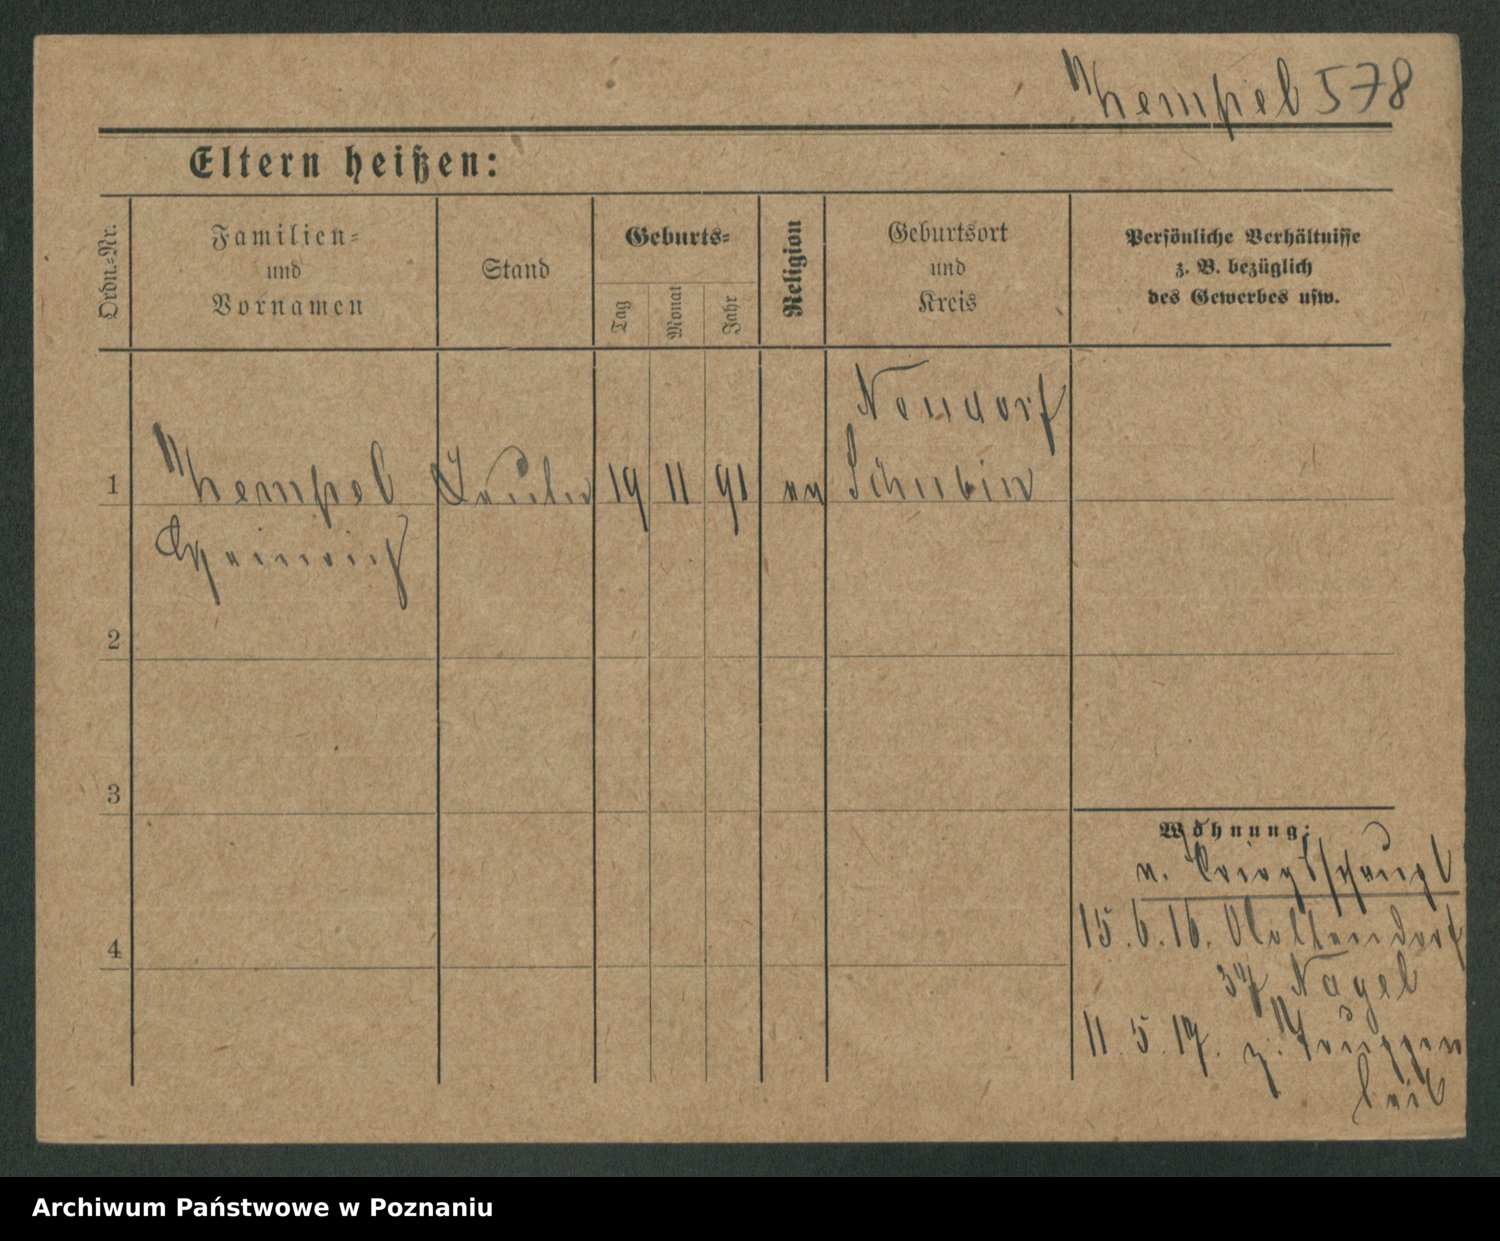 Hempel 578
Eltern heißen:
Ordn.-Nr.
Familien-
und
Vornamen
Stand
Geburts-
Tag
Monat
Jahr
Religion
Geburtsort
und
Kreis
Persönliche Verhältnisse
z. B. bezüglich
des Gewerbes usw.
Neudorf
1 Hempel 19 11 91 ev Schubin
Heinrich
2
3
4
Wohnung:
15.6.16.
37 Nagel
11.5.17. z.
Archiwum Państwowe w Poznaniu